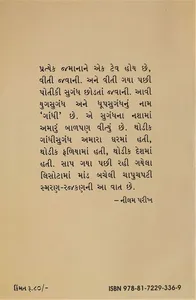 પ્રત્યેક જમાનાને એક ટેવ હોય છે,
વીતી જવાની. અને વીતી ગયા પછી
પોતીકી સુગંધ છોડતાં જવાની. આવી
યુગસુગંધ અને ધૂપસુગંધનું નામ
'ગાંધી' છે. એ સુગંધના નશામાં
અમારું બાળપણ વીત્યું છે. થોડીક
ગાંધીસુગંધ અમારા ઘરમાં હતી,
થોડીક ફળિયામાં હતી, થોડીક દેશમાં
હતી. સાપ ગયા પછી રહી ગયેલા
લિસોટામાં માંડ બચેલી ચાપુચપટી
સ્મરણ-રજકણની આ વાત છે.
– નીલમ પરીખ
કિંમત રૂ.૮૦/-
ISBN 978-81-7229-336-9